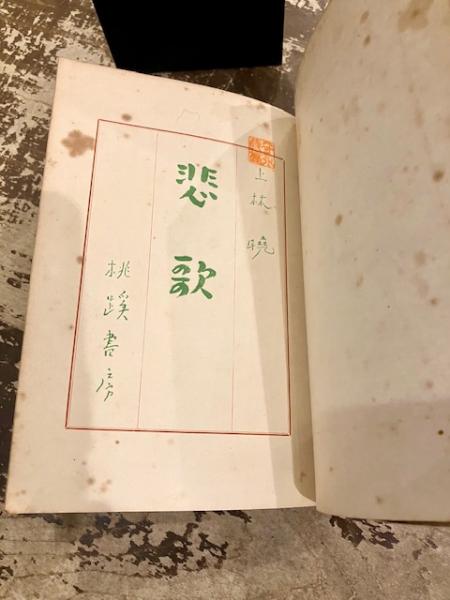 上林暁
悲歌
桃蹊書房